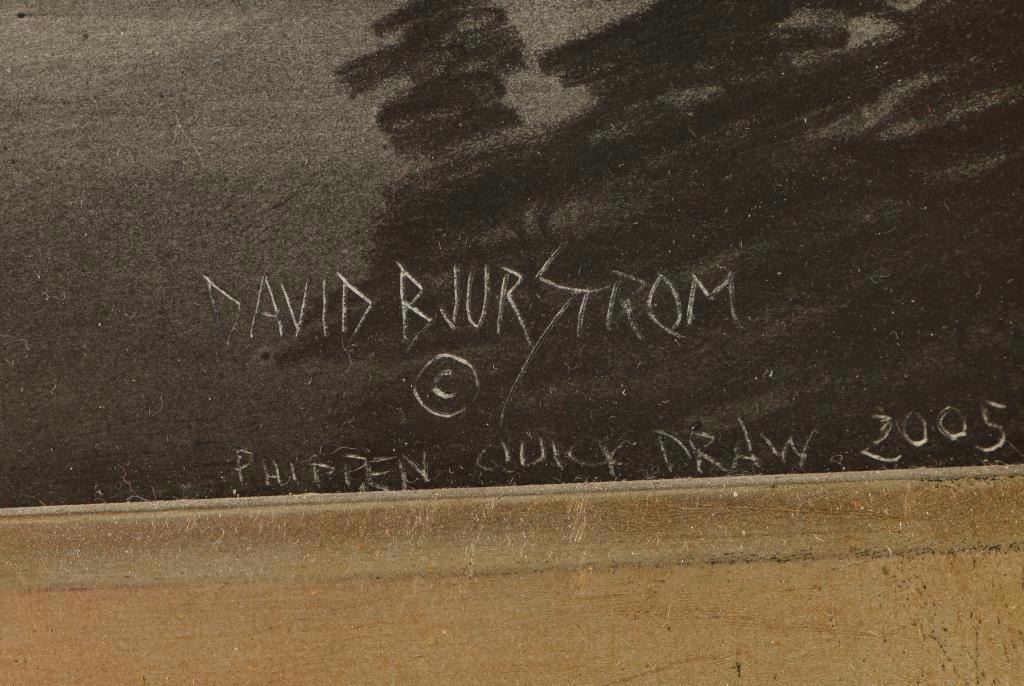 DAVID BJURSTROM
©
PHIPPEN QUICK DRAW 2005